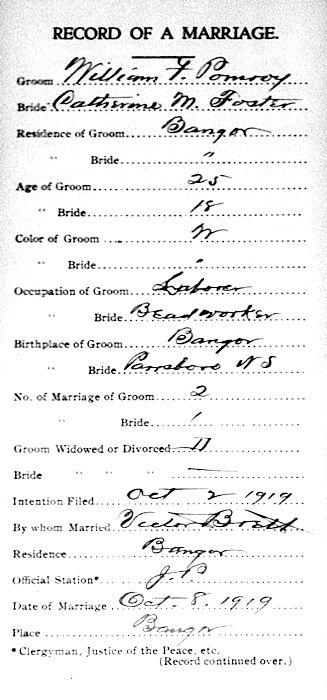 RECORD OF A MARRIAGE.
Groom William F. Pomroy
Bride Catherine M. Foster
Residence of Groom Bangor
" Bride "
Age of Groom 25
" Bride 18
Color of Groom W
" Bride "
Occupation of Groom Laborer
" Bride Beadworker
Birthplace of Groom Bangor
" Bride Parrsboro N S
No. of Marriage of Groom 2
" Bride 1
Groom Widowed or Divorced D
Bride " " " —
Intention Filed Oct 2 1919
By whom Married Victor
Residence Bangor
Official Station* J. P
Date of Marriage Oct. 8. 1919
Place Bangor
*Clergyman, Justice of the Peace, etc.
(Record continued over.)